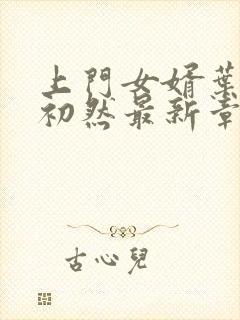 上門女婿葉
初然最新章
古心兒